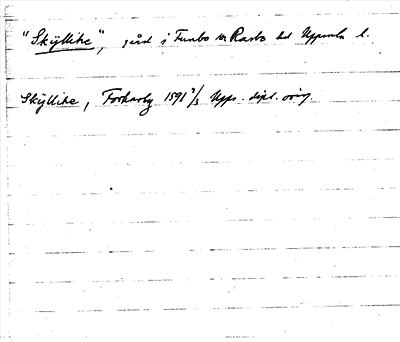 "Skÿllike", gård i Funbo sn Rasbo hd Uppsala l.
Skÿllike, Forkarby 1591 2/3 Upps. dipl. orig.